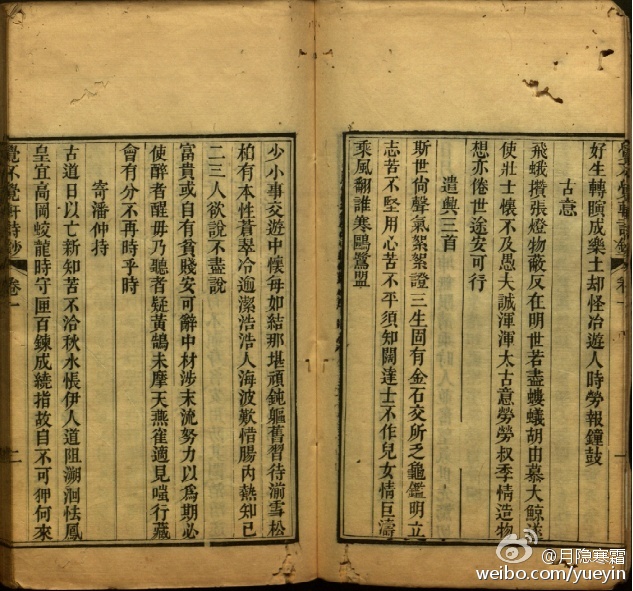 好生轉瞬成樂土却怪冶遊人時勞報鐘鼓
古意
飛蛾攢張燈物蔽反在明世若盡螻蟻胡由慕大鯨
使壯士懷不及愚夫誠渾渾太古意勞勞叔季情造物
想亦倦世途安可行
遣興三首
斯世尙聲氣絮絮證三生固有金石交所乏龜鑑明立
志苦不堅用心苦不平須知闊達士不作兒女情巨濤
乘風翻誰寒鷗鷺盟
少小事交遊中懷每如結那堪頑鈍軀舊習待湔雪松
柏有本性蒼翠冷逾潔浩浩人海波歎惜腸內熱知已
二三人欲說不盡說
富貴或自有貧賤安可辭中材涉末流努力以爲期必
使醉者醒毋乃聽者疑黃鵠未摩天燕雀適見嗤行藏
會有分不再時乎時
寄潘仲持
古道日以亡新知苦不洽秋水悵伊人道阻溯洄怯鳳
皇宜高岡蛟龍時守匣百鍊成繞指故自不可狎何來
覺不覺軒詩鈔
卷一
二
@月隐寒霜
weibo.com/yueyin